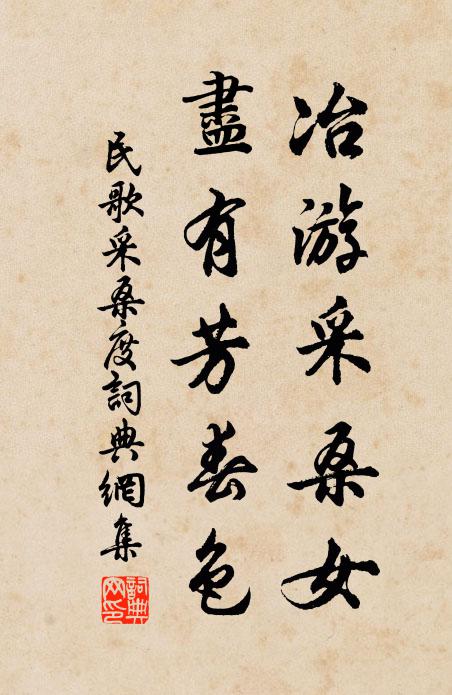 冶游采桑女
盡有芳春色
民歌采桑度詞典網集
詞典
网印